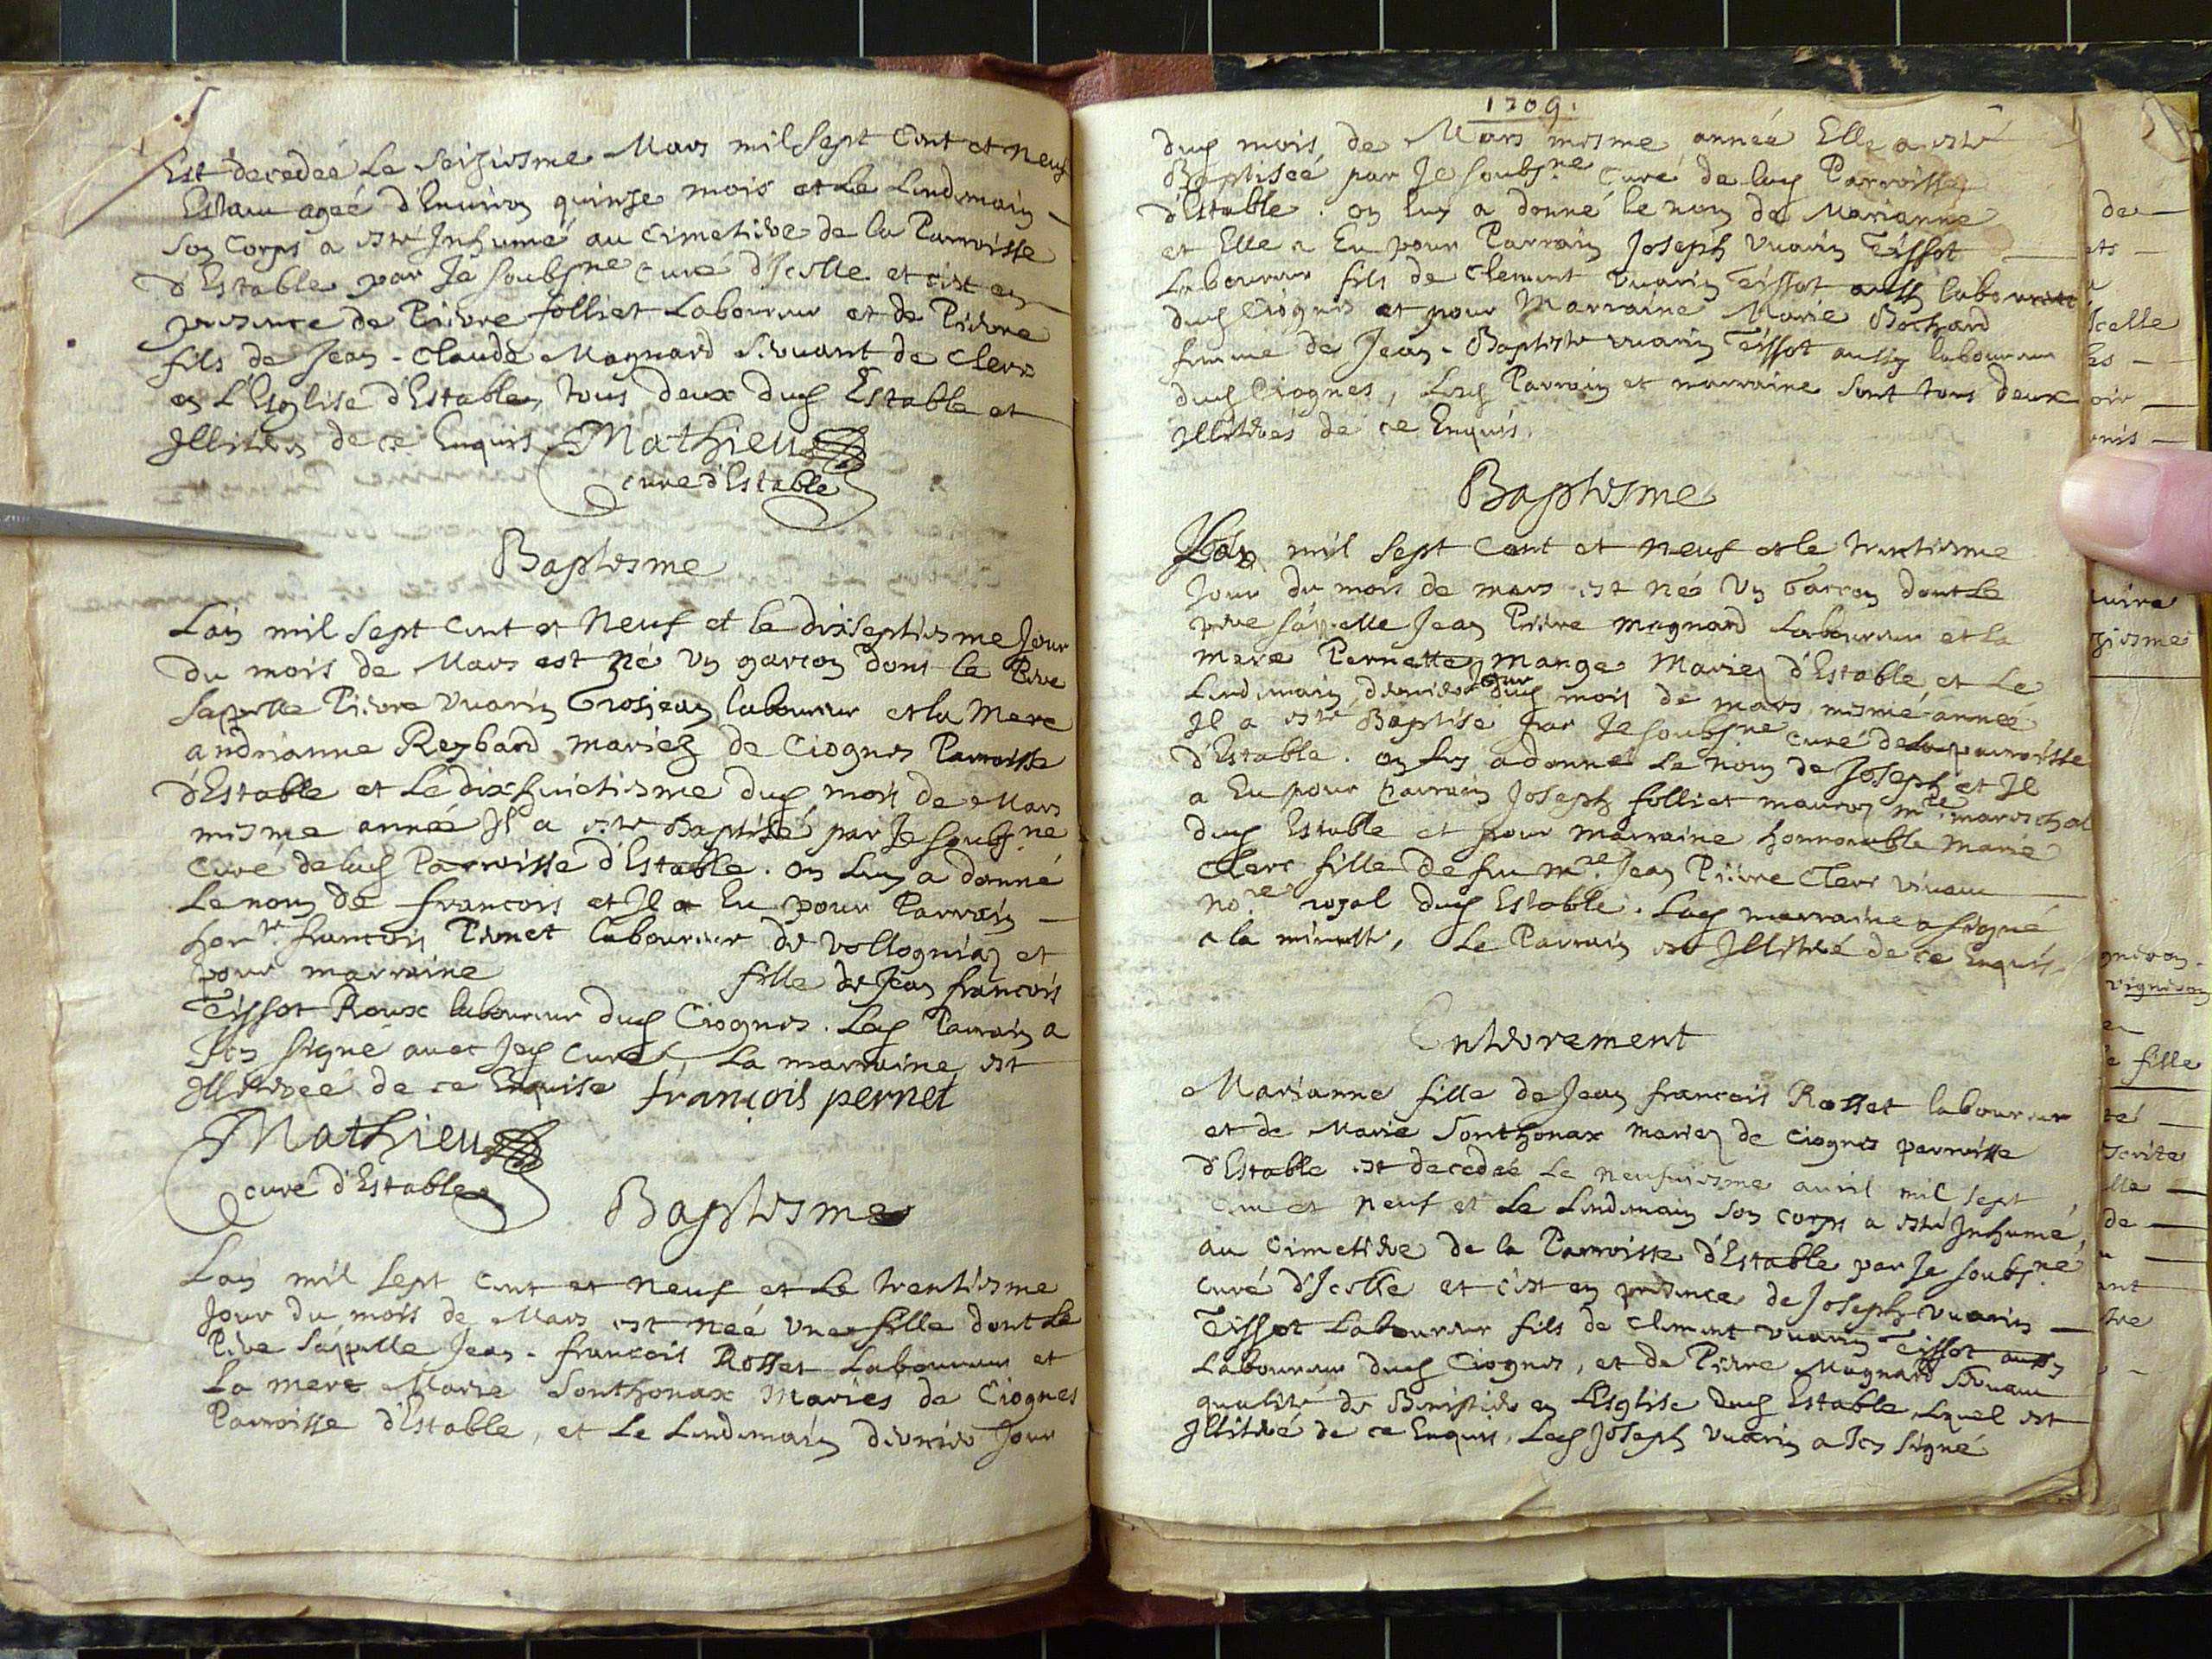 Est decedeé le seiziesme Mars mil sept cent et neuf
Estant ageé d'Enuiron quinse mois et le lendemain
son corps a esté Inhumé au cimetiere de la Parroisse
d'Estable par Je soubs.ne curé d'Icelle et c'est en
presence de Pierre folliet Laboureur et de Pierre
fils de Jean-Claude Magnard seruant de clerc
en L'Esglise d'Estable, tous deux dud Estable et
Illiterés de ce Enquis Mathieu
curé d'Estable
Baptesme
L'an mil sept cent et Neuf et le dixseptiesme Jour
du mois de Mars est né un garcon dont le Pere
s'appelle Pierre Vuarin Grosjean laboureur et la Mere
andrianne Reybard mariez de Ciognes Parroisse
d'Estable et Le dixhuictiesme dud mois de Mars
mesme année Il a esté Baptisé par Je soubs.ne
Curé de lad Parroisse d'Estable. on Luy a donné
Le nom de francois et Il a Eu pour Parrain
hon.te francois Pernet laboureur de Vollognia et
pour marraine fille de Jean francois
Tissot Roux laboureur dud Ciognes. Led Parrain a
Icy signé auec Jed Curé, La marraine est
Illitereé de ce Enquise françois pernet
Mathieu
curé d'Estable
Baptesme
L'an mil sept cent et neuf et Le trentiesme
Jour du mois de Mars est neé une fille dont Le
Pere s'appelle Jean-francois Rosset Laboureur et
La mere Marie Sonthonax Maries de Ciognes
Parroisse d'Estable, et Le Lendemain dernier Jour
1709.
dud mois de Mars mesme année Elle a esté
Baptiseé par Je soubs.ne Curé de lad Parroisse
d'Estable. on luy a donné le nom de Marianne
et Elle a Eu pour Parrain Joseph Vuarin Tissot
Laboureur fils de Clement Vuarin Tissot aussy laboureur
dud Ciognes et pour Marraine Marie Bochard
femme de Jean-Baptiste Vuarin Tissot aussy laboureur
dud Ciognes, Lesd Parrain et marraine sont tous deux
Illiterés de ce Enquis.
Baptesme
L'an mil sept cent et neuf et le trentiesme
Jour du mois de mars est né Un Garcon dont Le
pere s'apelle Jean Pierre magnard Laboureur et La
mere Pernette mange Mariez d'Estable, et Le
Lendemain dernier Jour dud mois de mars mesme année
Il a esté Baptisé par Je soubsne curé de La parroisse
d'Estable. on luy a donné Le nom de Joseph et Il
a Eu pour Parrain Joseph folliet mauron m.re mareschal
dud Estable et pour marraine honnorable Marie
Clerc fille de feu m.re Jean Pierre Clerc viuant
no.re royal dud Estable. Lad marraine a signé
a la minutte, Le Parrain est Illiteré de ce Enquis
Enterrement
Marianne fille de Jean francois Rosset laboureur
et de Marie Sonthonax Mariez de Ciognes parroisse
d'Estable est decedeé Le neufuiesme auril mil sept
Cent et neuf et Le Lendemain son corps a esté Inhumé
au cimetiere de la Parroisse d'Estable par Je soubs.né
Curé d'Icelle et c'est en presence de Joseph Vuarin
Tissot Laboureur fils de Clement Vuarin Tissot aussy
Laboureur dud Ciognes, et de Pierre Magnard seruant
qualité de Benistier en L'Esglise dud Estable Lequel est
Illiteré de ce Enquis, Led Joseph Vuarin a Icy signé
de
Icelle
fille
de